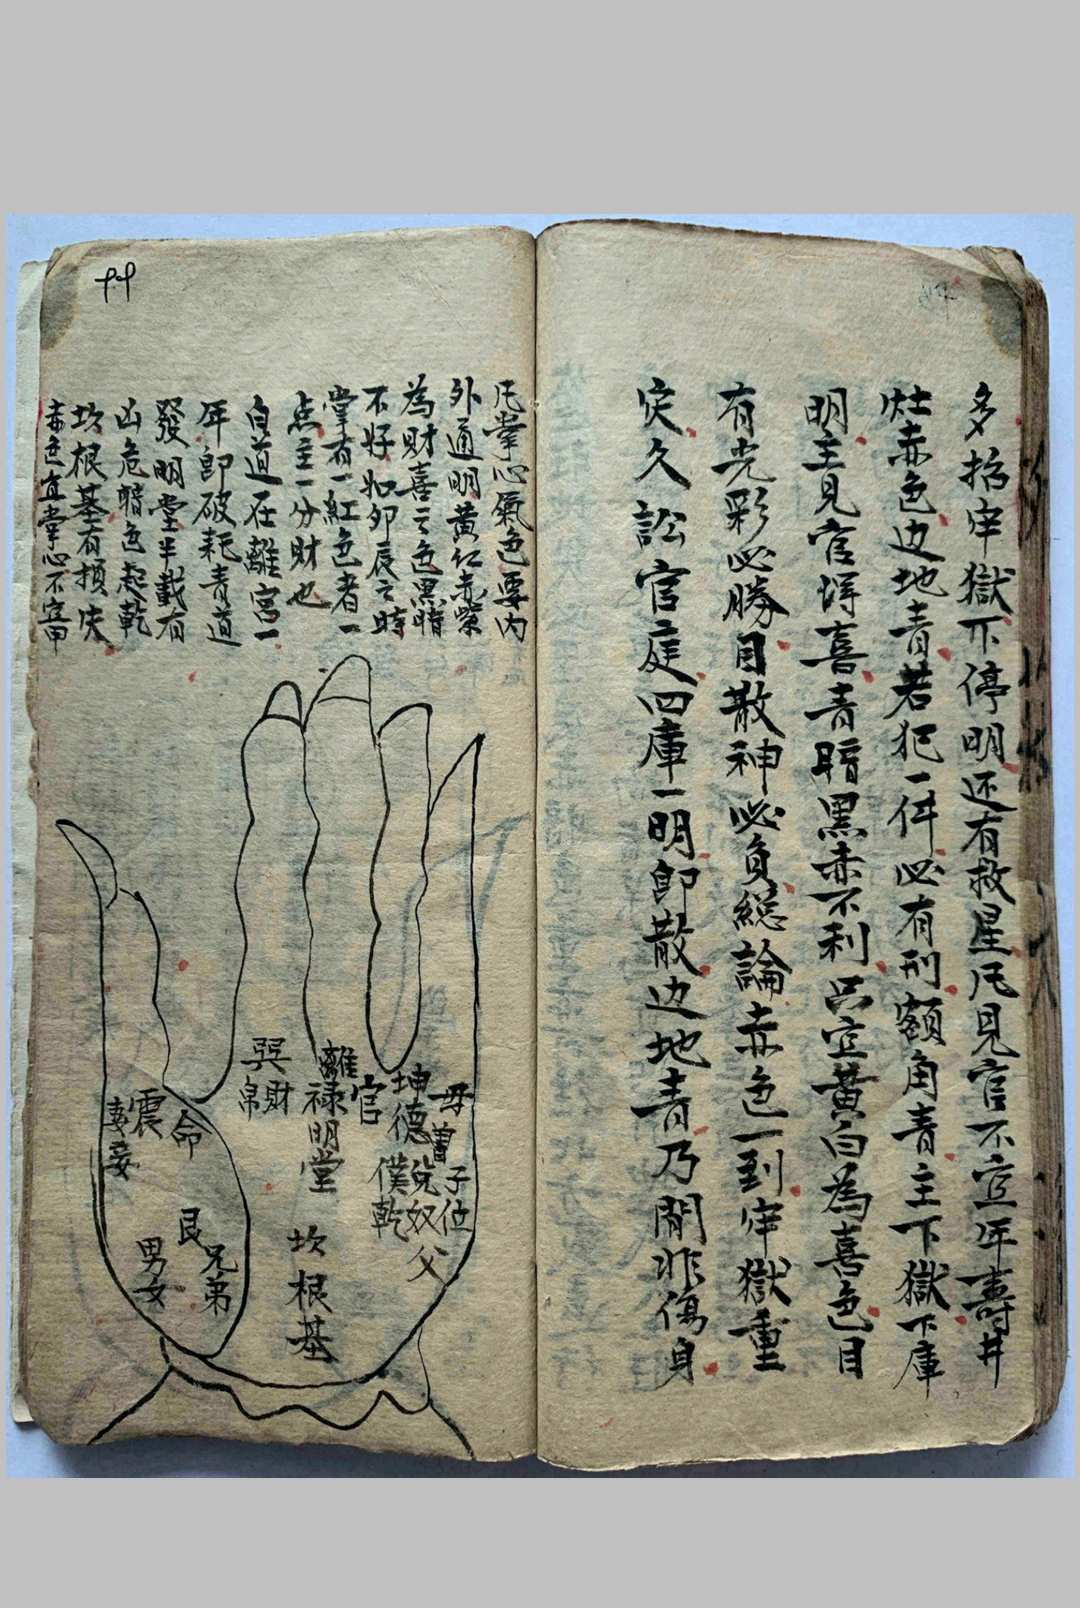 多招牢獄不停明还有救星凡見官不宜年壽井
灶赤色边地青若犯一件必有刑額角青主下獄下庫
明主見官得喜青暗黑赤不利只宜黃白為喜色目
有光彩必勝目散神必負総論赤色一到牢獄重
灾久訟官庭四庫一明即散边地青乃閙非傷身
凡掌心氣色要内
外通明黃红赤紫
為財喜之色黑暗
不好如卯辰之時
掌有一紅色者一
点主一分財也
白道在離宮一
年即破耗青道
發明堂半載有
凶危暗色起乾
坎根基有損失
赤色宜掌心不宜甲
母
曾
子位
坤德
兌奴
父
官
僕
乾
離
禄
明堂
坎
根基
巽
財帛
命
震
妻妾
艮
兄弟
男女